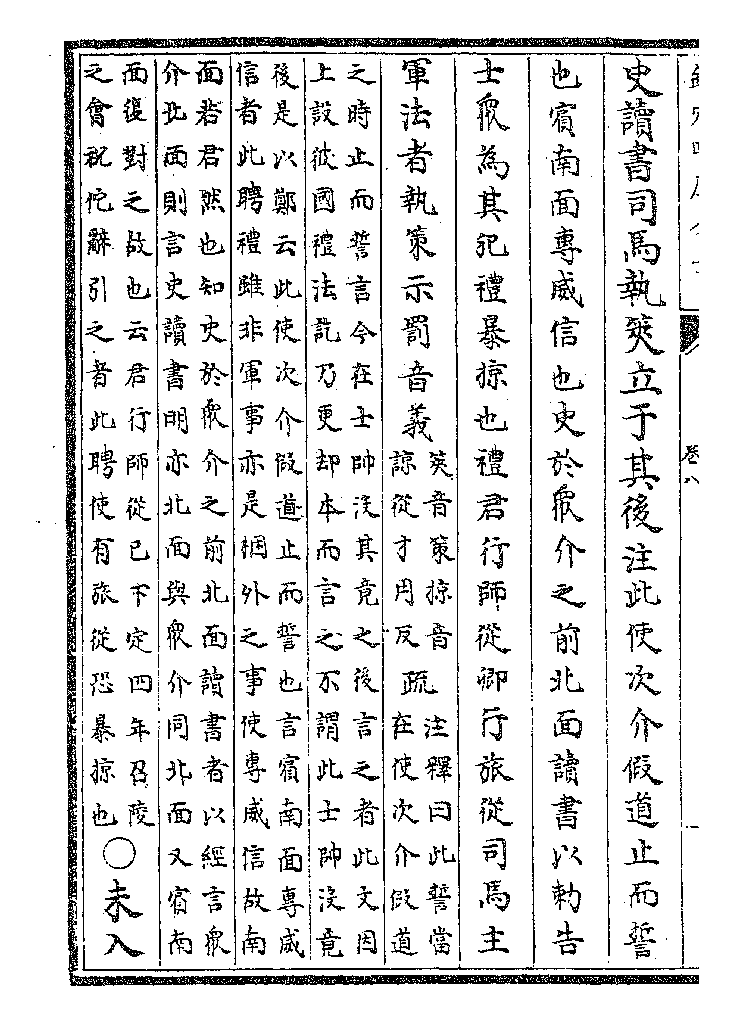 卷八
史讀書司馬執筴立于其後注此使次介假道止而誓
也賓南面專威信也史於衆介之前北面讀書以勑告
士衆為其犯禮暴掠也禮君行師從卿行旅從司馬主
軍法者執策示罰音義
筴音策掠音
諒從才用反
疏
注釋曰此誓當
在使次介假道
之時止而誓言今在士帥沒其竟之後言之者此文因
上設彼國禮法訖乃更却本而言之不謂此士帥沒竟
後是以鄭云此使次介假道止而誓也言賓南面專威
信者此聘禮雖非軍事亦是梱外之事使專威信故南
面若君然也知史於衆介之前北面讀書者以經言衆
介北面則言史讀書明亦北面與衆介同北面又賓南
面復對之故也云君行師從已下定四年召陵
之會祝佗辭引之者此聘使有旅從恐暴掠也
○未入